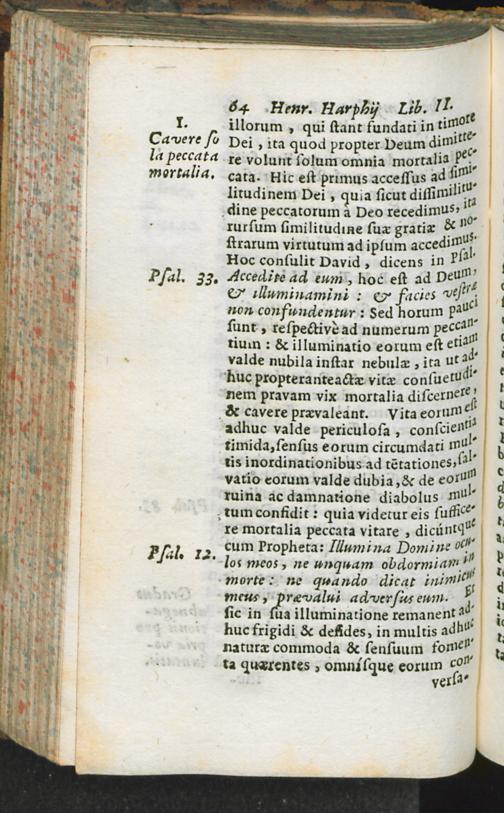 64 Henr. Harphij Lib. II.
I.
Cavere so
la peccata
mortalia.
illorum, qui ſtant fundati in timore
Dei, ita quod propter Deum dimitte-
re volunt ſolum omnia mortalia pec-
cata. Hic eſt primus acceſſus ad ſimi-
litudinem Dei, quia ſicut diſſimilitu-
dine peccatorum à Deo recedimus, ita
rurſum ſimilitudine ſuæ gratiæ & no-
ſtrarum virtutum ad ipſum accedimus.
Hoc conſulit David, dicens in Pſal.
Pſal. 33.
Accedite ad eum, hoc eſt ad Deum,
& illuminamini: & facies veſtræ
non confundentur: Sed horum pauci
ſunt, reſpectivè ad numerum peccan-
tium: & illuminatio eorum eſt etiam
valde nubila inſtar nebulæ, ita ut ad-
huc propter anteactæ vitæ conſuetudi-
nem pravam vix mortalia diſcernere,
& cavere prævaleant. Vita eorum eſt
adhuc valde periculoſa, conſcientia
timida, ſenſus eorum circumdati mul-
tis inordinationibus ad tētationes, ſal-
vatio eorum valde dubia, & de eorum
ruina ac damnatione diabolus mul-
tum confidit: quia videtur eis ſuffice-
re mortalia peccata vitare, dicúntque
Pſal. 12.
cum Propheta: Illumina Domine ocu-
los meos, ne unquam obdormiam in
morte: ne quando dicat inimicus
meus, prævalui adverſus eum. Et
ſic in ſua illuminatione remanent ad-
huc frigidi & deſides, in multis adhuc
naturæ commoda & ſenſuum fomen-
ta quærentes, omníſque eorum con-
verſa-